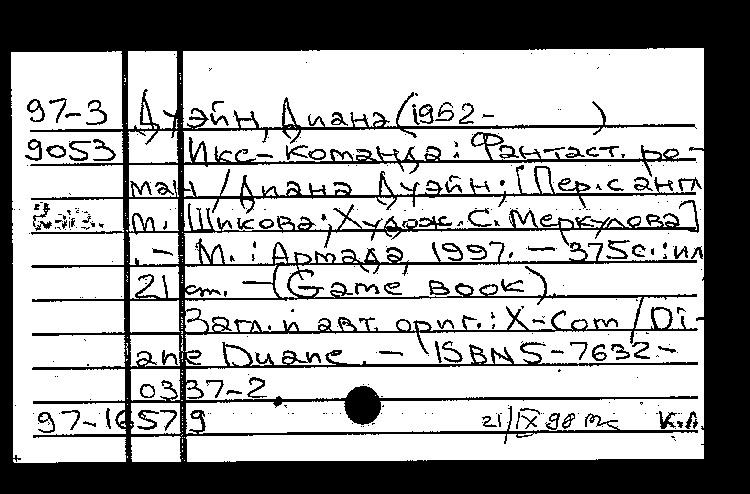 97-3 Дуэйн, Диана (1952- )
9053 Икс-команда: Фантаст. ро-
ман / Диана Дуэйн; [Пер. с англ
М. Шикова; Худож. С. Меркулова]
. - М.: Армада, 1997. - 375с.: ил
21 см. - (Game book).
Загл. и авт. ориг.: X-Com / Di-
ane Duane. - ISBN 5-7632-
0337-2.
97-16579 21/IX 98 К.Л.